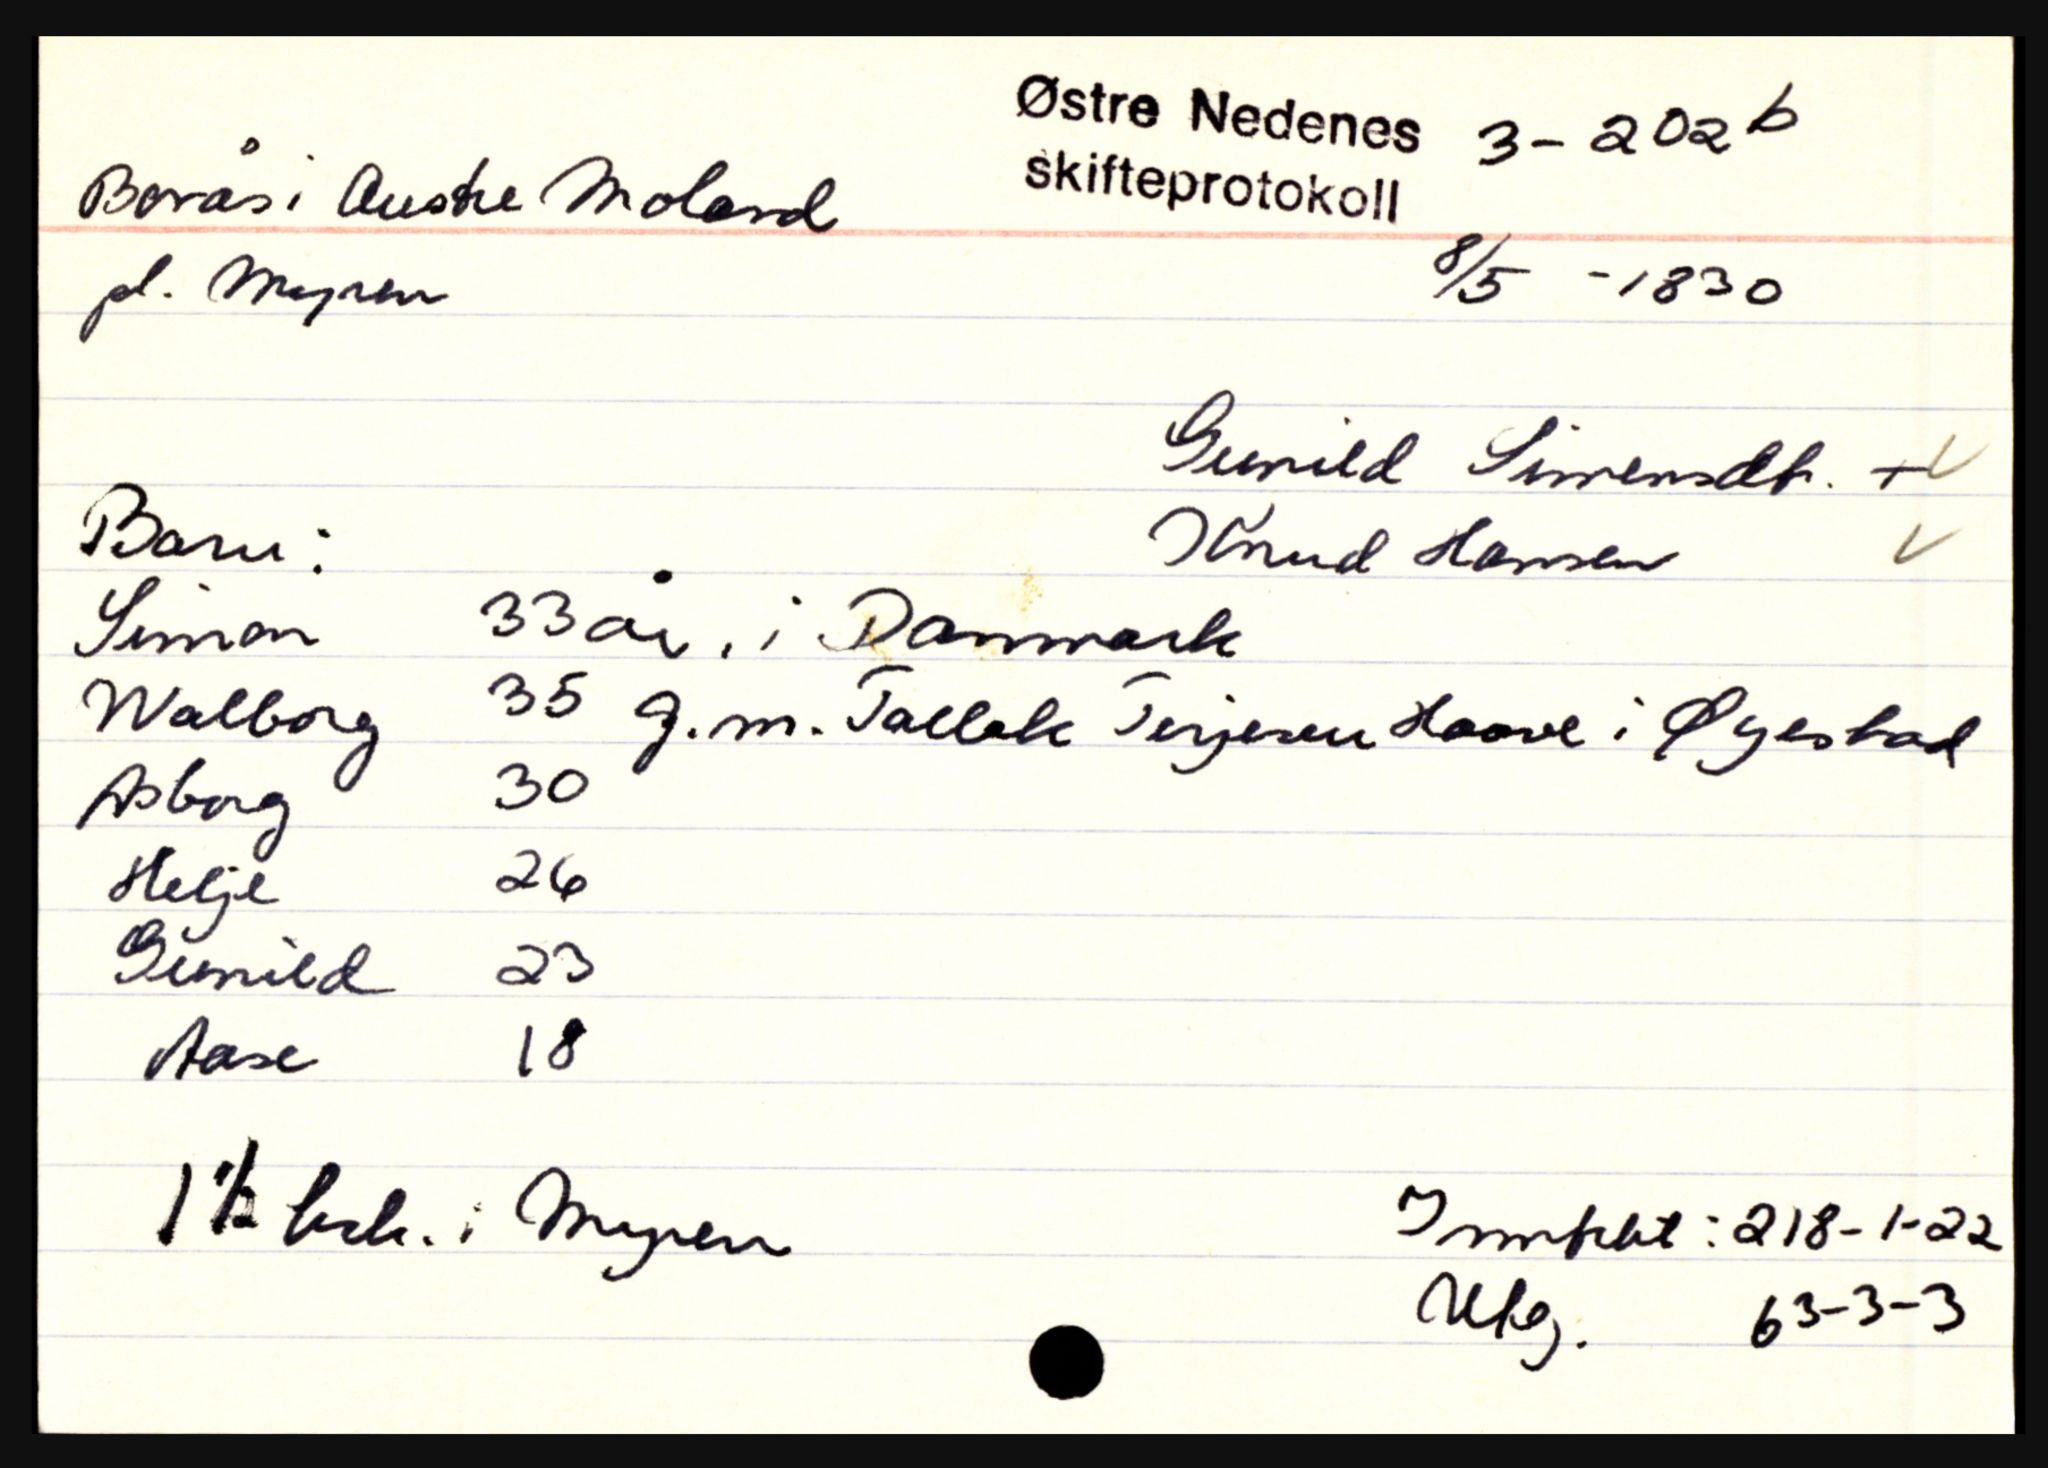 Østre Nedenes 3-202b
skifteprotokoll
Borås i Austre Moland
pl. Myren
8/5 -1830
Gunild Simensdtr. +
Knud Hansen
Barn:
Simon 33 år, i Danmark
Walborg 35 g.m. Tallak Terjesen Haave i Øyestad
Asborg 30
Helje 26
Gunild 23
Aase 18
1 1/2 i Myren
218-1-22
63-3-3